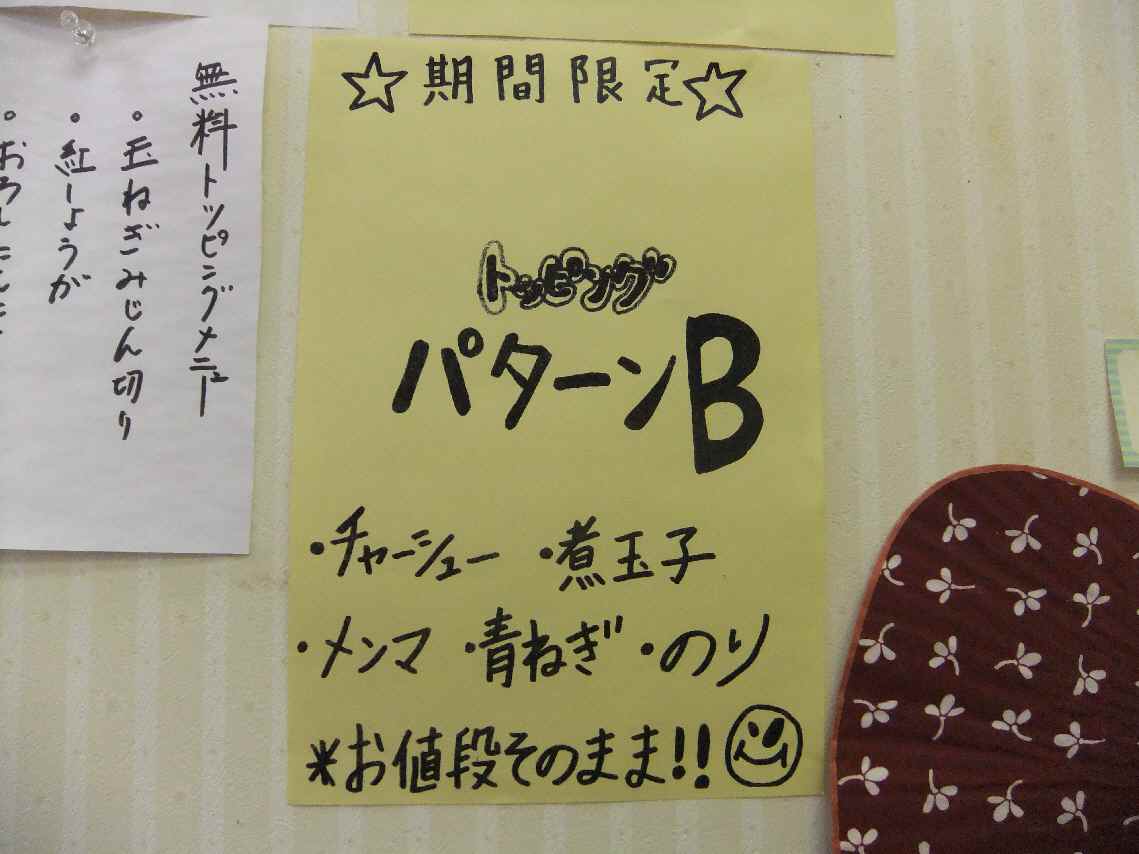 ☆期間限定☆
トッピング
パターンB
・チャーシュー ・煮玉子
・メンマ ・青ねぎ ・のり
*お値段そのまま!!
無料トッピングメニュー
・玉ねぎみじん切り
・紅しょうが